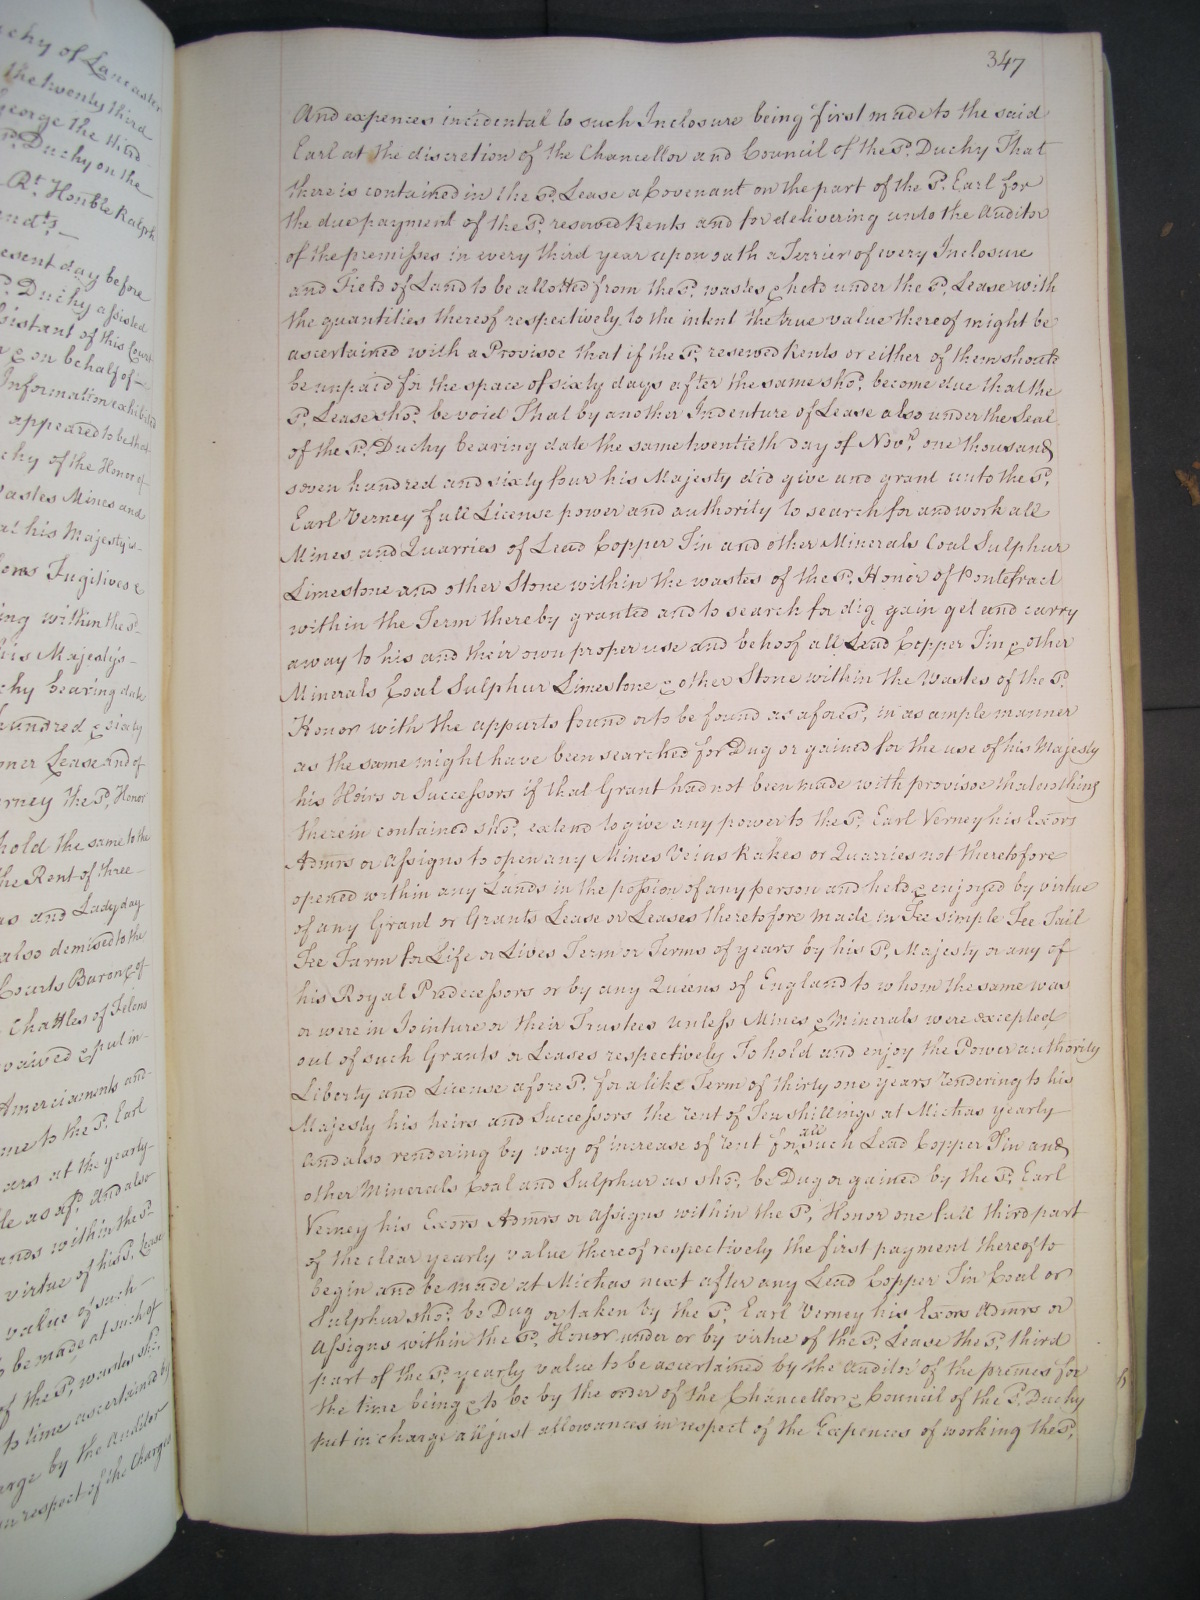 chy of Lancaster
the twenty third
George the third
Sd. Duchy on the
Rt. Honble Ralph
end.ts
esent day before
Sd. Duchy assisted
sistant of this Court
& on behalf of
Information exhibited
appeared to be that
chy of the Honor of
Wastes Mines and
at his Majesty's
lons Fugitives &
ing within the sd.
his Majesty's
chy bearing date
hundred & sixty
mer Lease And of
erney the Sd. Honor
hold the same to the
the Rent of three
as and Lady day
also demised to the
Courts Baron & of
Chattles of Felons
waived & put in
Amerciaments and
me to the Sd. Earl
ars at the yearly
le as afsd. And also
ands within the Sd.
virtue of his Sd. Lease
value of such
to be made at such of
of the Sd. wastes sho:
to time ascertained by
arge by the Auditor
in respect of the Charges
347
And expences incidental to such Inclosure being first made to the said
Earl at the discretion of the Chancellor and Council of the Sd. Duchy That
there is contained in the Sd. Lease a Covenant on the part of the Sd. Earl for
the due payment of the Sd. reserved Rents and for delivering unto the Auditor
of the premisses in every third year upon oath a Terrier of every Inclosure
and Field of Land to be allotted from the Sd. wastes & held under the Sd. Lease with
the quantities thereof respectively to the intent the true value thereof might be
ascertained with a Provisoe that if the Sd. reserved Rents or either of them should
be unpaid for the space of sixty days after the same sho.d become due that the
Sd. Lease sho.d be void That by another Indenture of Lease also under the Seal
of the Sd. Duchy bearing date the same twentieth day of Novr. one thousand
seven hundred and sixty four his Majesty did give and grant unto the Sd.
Earl Verney full License power and authority to search for and work all
Mines and Quarries of Lead Copper Tin and other Minerals Coal Sulphur
Limestone and other Stone within the wastes of the Sd. Honor of Pontefract
within the Term thereby granted and to search for dig gain get and carry
away to his and their own proper use and behoof all Lead Copper Tin & other
Minerals Coal Sulphur Limestone & other Stone within the Wastes of the Sd.
Honor with the appurts found or to be found as aforesd. in as ample manner
as the same might have been searched for Dug or gained for the use of his Majesty
his Heirs or Successors if that Grant had not been made with provisoe that nothing
therein contained sho.d extend to give any power to the Sd. Earl Verney his Exors
Admrs or Assigns to open any Mines Veins Rakes or Quarries not theretofore
opened within any Lands in the possion of any person and held & enjoyed by virtue
of any Grant or Grants Lease or Leases theretofore made in Fee simple Fee Tail
Fee Farm for Life or Lives Term or Terms of years by his Sd. Majesty or any of
his Royal Predecessors or by any Queens of England to whom the same was
or were in Jointure or their Trustees unless Mines & Minerals were excepted
out of such Grants or Leases respectively To hold and enjoy the Power authority
Liberty and License aforesd. for a like Term of thirty one years rendering to his
Majesty his heirs and Successors the rent of Ten shillings at Michas yearly
And also rendering by way of increase of rent for all such Lead Copper Tin and
other Minerals Coal and Sulphur as sho.d be Dug or gained by the Sd. Earl
Verney his Exors Admrs or Assigns within the Sd. Honor one full third part
of the clear yearly value thereof respectively the first payment thereof to
begin and be made at Michas next after any Lead Copper Tin Coal or
Sulphur sho.d be Dug or taken by the Sd. Earl Verney his Exors Admrs or
Assigns within the Sd. Honor under or by virtue of the Sd. Lease the Sd. third
part of the Sd. yearly value to be ascertained by the Auditor of the premes for
the time being & to be by the order of the Chancellor & Council of the Sd. Duchy
put in charge all just allowances in respect of the Expences of working the Sd.